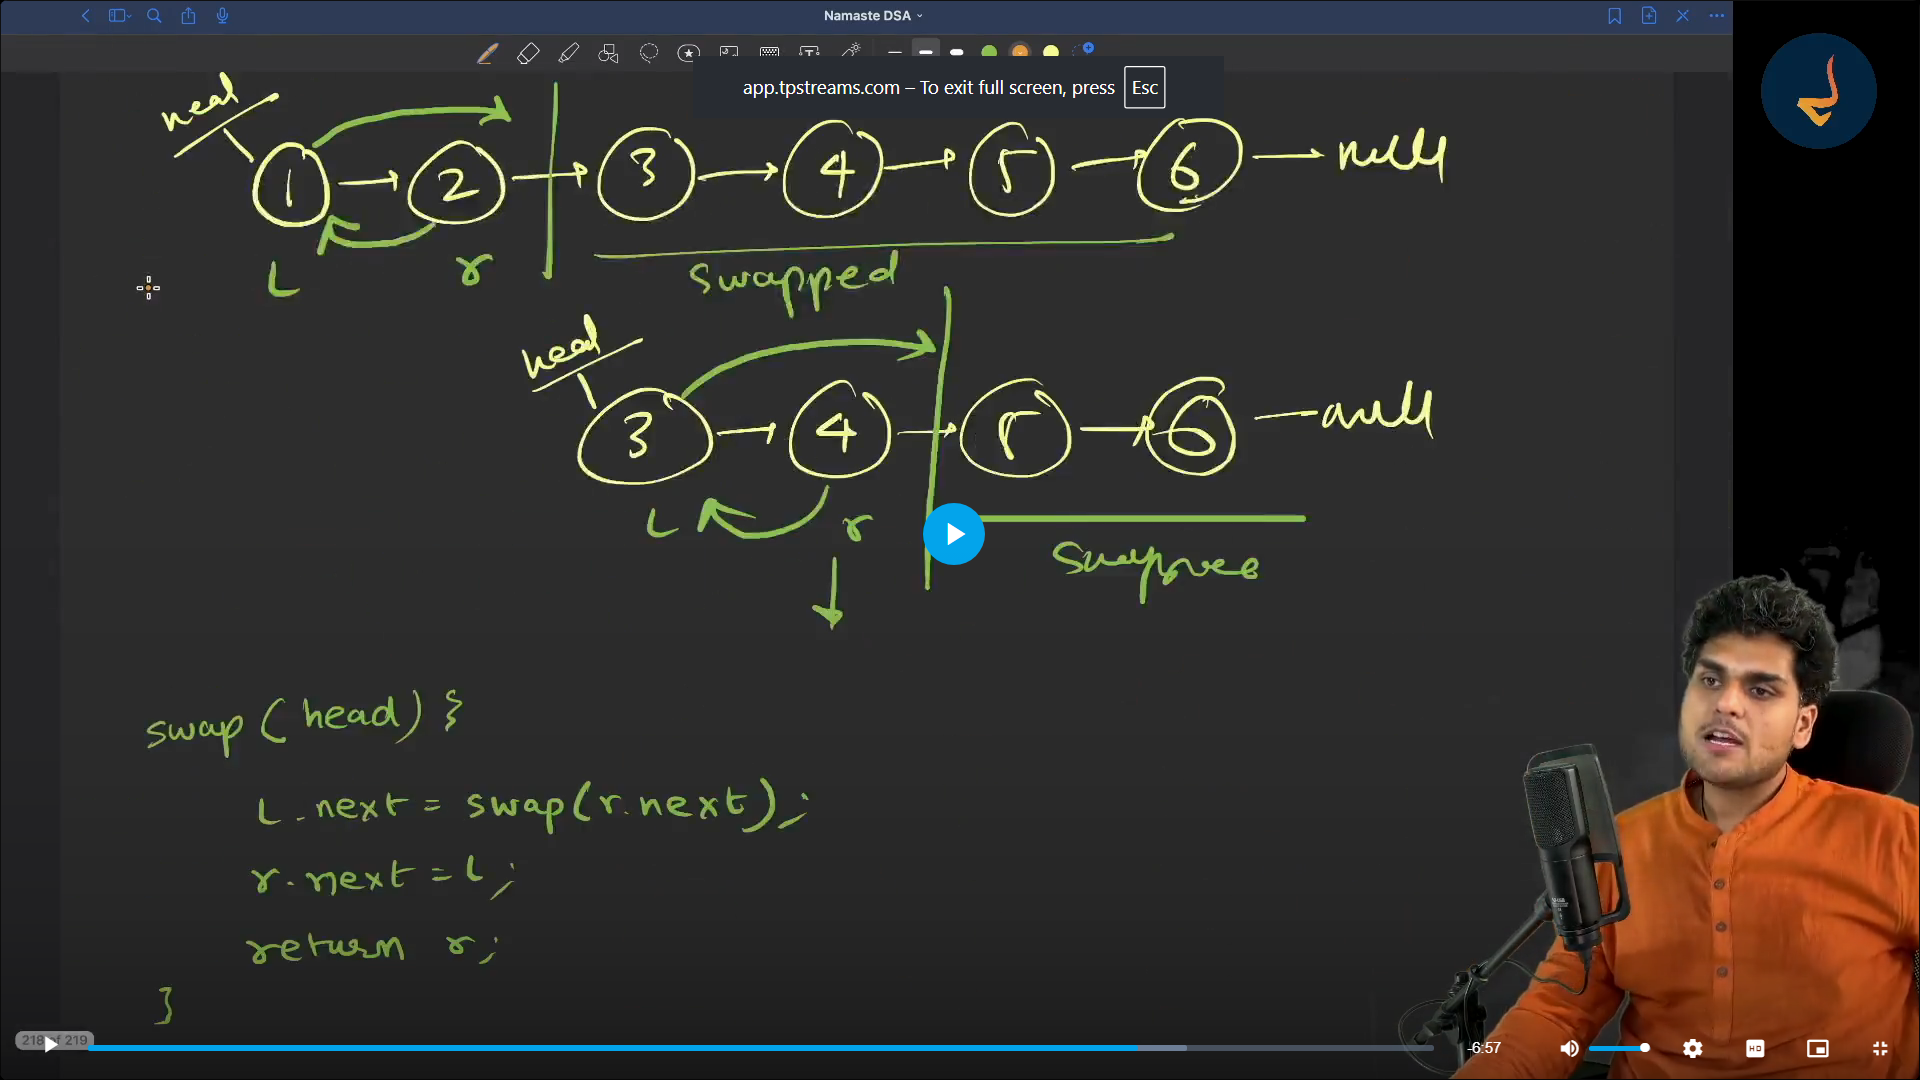 Namaste DSA
app.tpstreams.com – To exit full screen, press Esc
head
1 2 3 4 5 6 null
L r
swapped
head
3 4 5 6 null
L r
swap(head) }
L.next = swap(r.next);
r.next = L;
return r;
}
218 of 219
-6:57
HD